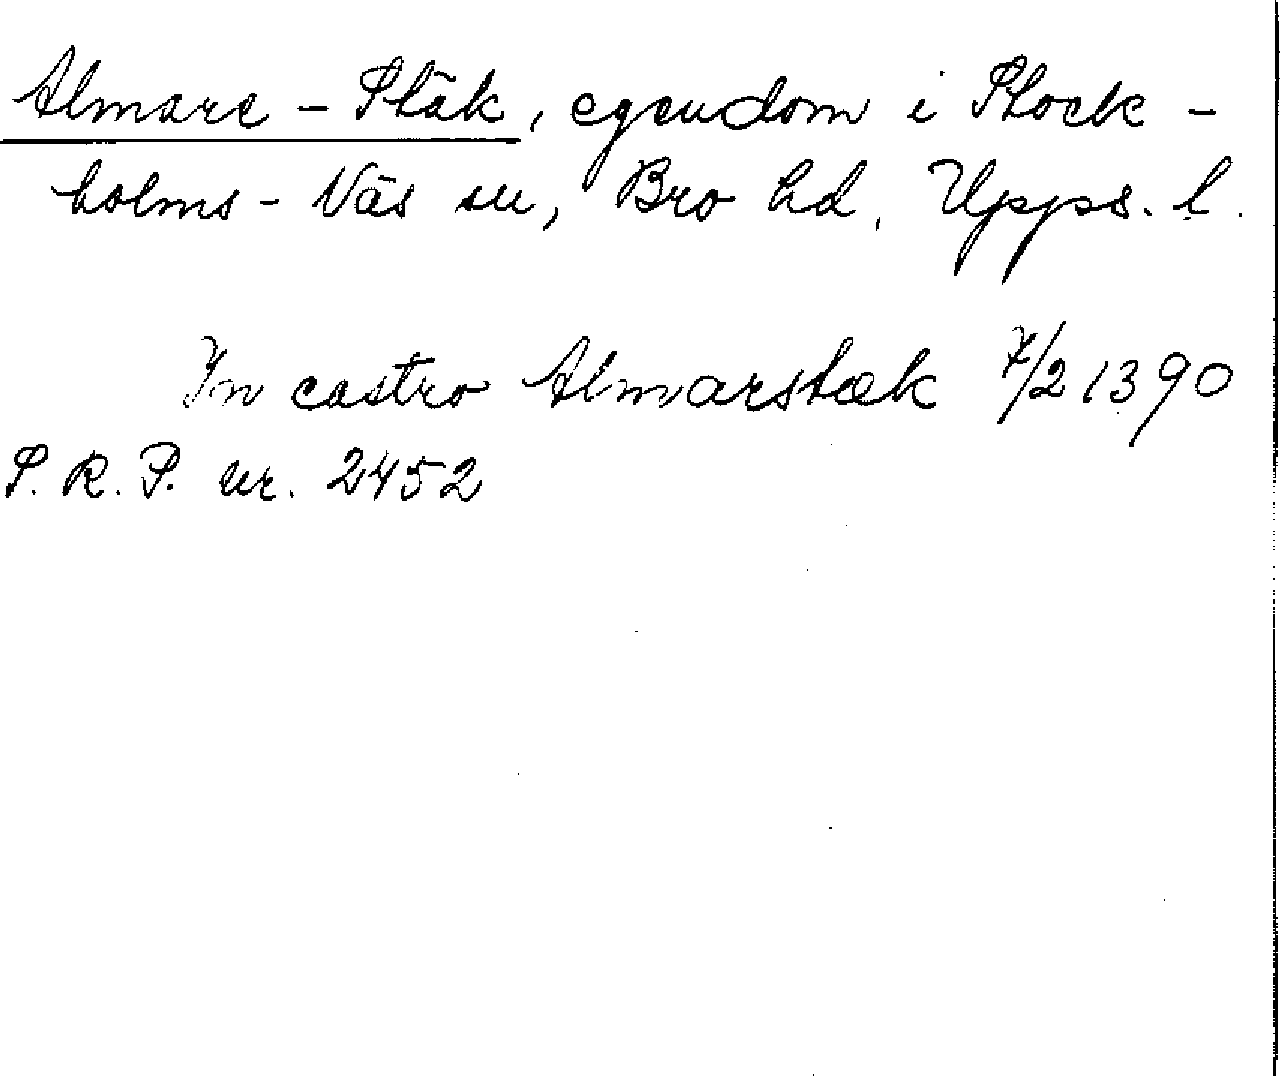 Almare - Stäk, egendom i Stock -
holms - Näs sn, Bro hd, Upps. l.
In castro Almarstæk 7/2 1390
S. R. P. nr. 2452